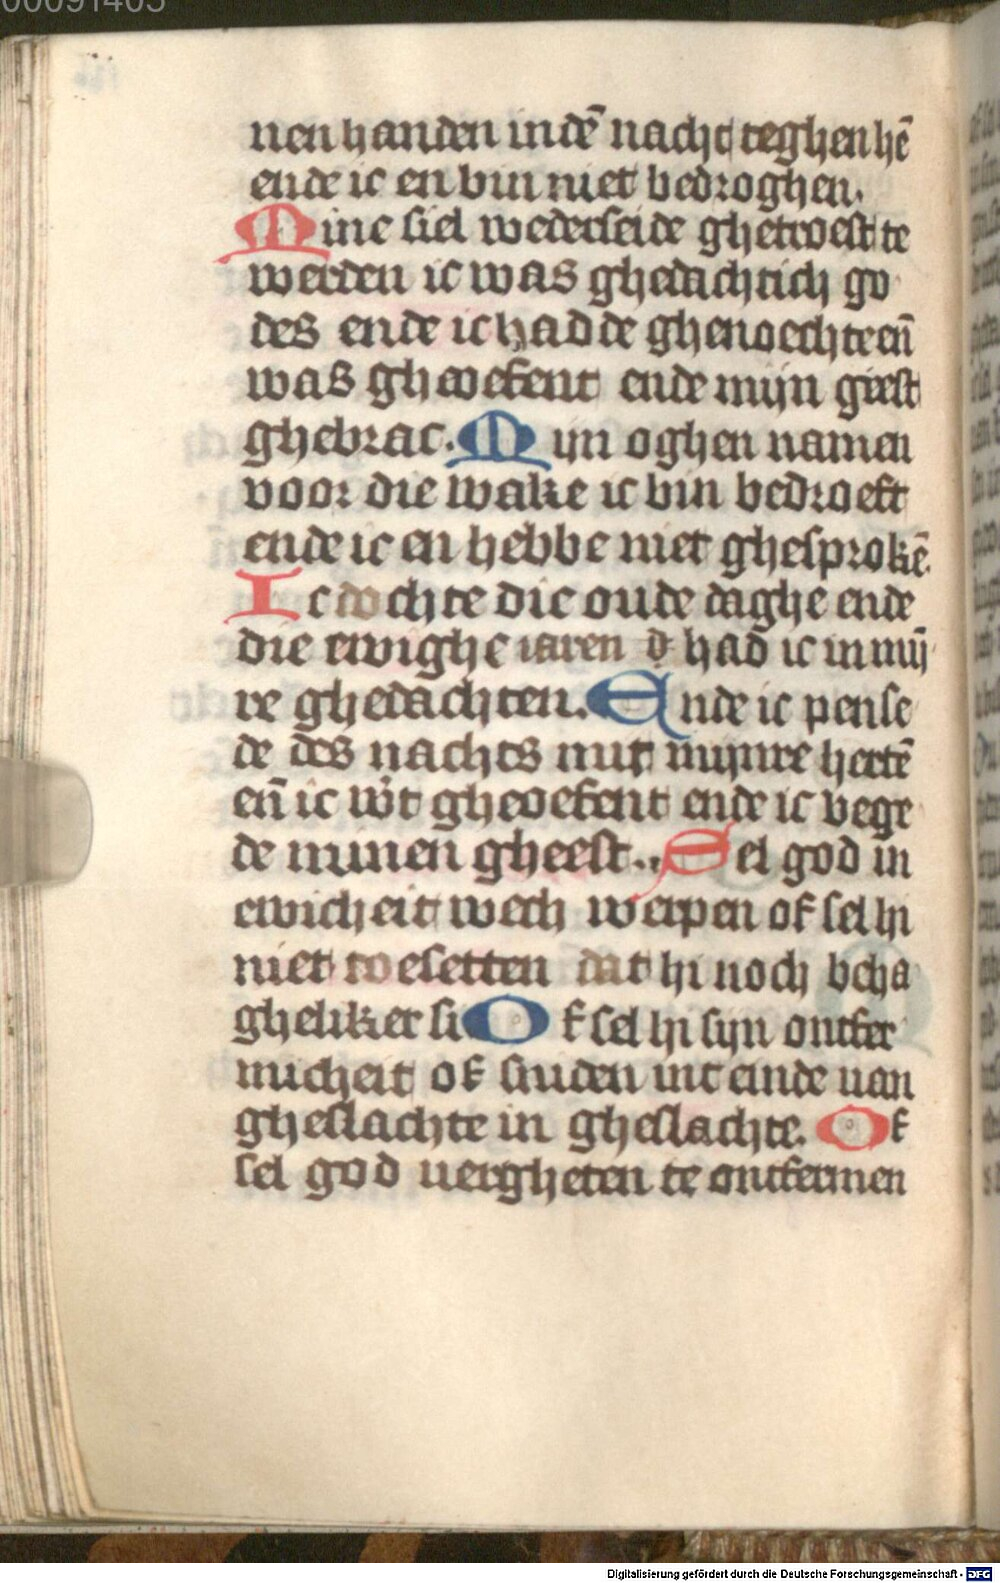 00091405
nen handen in dē nacht teghen hē
ende ic en bin niet bedroghen.
Mine siel wederseide ghetroest te
werden ic was ghedachtich go
des ende ic hadde ghenoechte eñ
was gheoefent ende mijn geest
ghebrac. Mijn oghen namen
voor die wake ic bin bedroeft
ende ic en hebbe niet ghesprokē.
Ic dochte die oude daghe ende
die ewighe iaren had ic in mij
re ghedachten. Ende ic pense
de des nachts mit mijnre hertē
eñ ic gheoefent ende ic vege
de minen gheest. Sel god in
ewicheit wech werpen of sel hi
niet toesetten dat hi noch bcha
gheliker si Of sel hi sijn ontfer
micheit of sniden int einde uan
gheslachte in gheslachte. Of
sel god uergheten te ontfermen
Digitalisierung gefördert durch die Deutsche Forschungsgemeinschaft - DFG